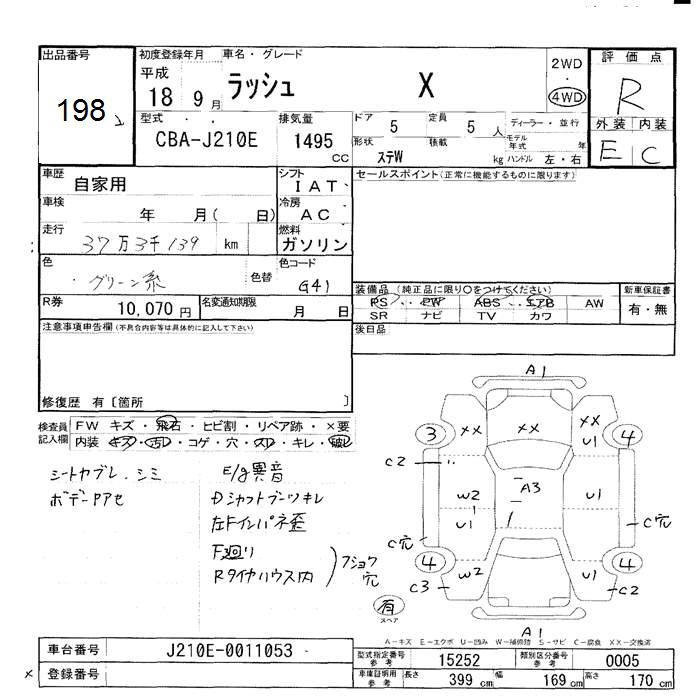 出品番号
198
初度登録年月
平成
18 9月
車名・グレード
ラッシュ X
2WD
・
4WD
評価点
R
外装 内装
E C
型式
CBA-J210E
排気量
1495
CC
ドア 5 定員 5 人
形状 ステW 積載 kg
ディーラー・並行
モデル年式 年
ハンドル 左・右
車歴
自家用
シフト
IAT
セールスポイント(正常に機能するものに限ります)
車検
年 月( 日)
冷房
AC
走行
37万3千139 km
燃料
ガソリン
色
グリーン系
色替
色コード
G41
装備品 (純正品に限り○をつけてください)
PS PW ABS エアB AW
SR ナビ TV カワ
新車保証書
有・無
R券
10,070円
名変通知期限
月 日
後日品
注意事項申告欄(不具合内容等は具体的に記入して下さい)
修復歴 有〔箇所 〕
検査員記入欄
FW キズ・飛石・ヒビ割・リペア跡・×要
内装 キズ・汚レ・コゲ・穴・スレ・キレ・破レ
シートヤブレ.シミ
ボデーPアセ
E/g異音
Dシャフトブーツキレ
左Fインパネ歪
F廻り
Rタイヤハウス内
フショク穴
A1
3
××
××
××
U1
4
C2
W2
A3
U1
U1
C穴
C穴
4
W2
C3
U1
4
C2
有
スペア
A1
A-キズ E-エクボ U-凹み W-補修跡 S-サビ C-腐食 XX-交換済
車台番号
J210E-0011053
登録番号
型式指定番号
参考
15252
類別区分番号
参考
0005
車庫証明用
参考
長さ 399 cm 幅 169 cm 高さ 170 cm